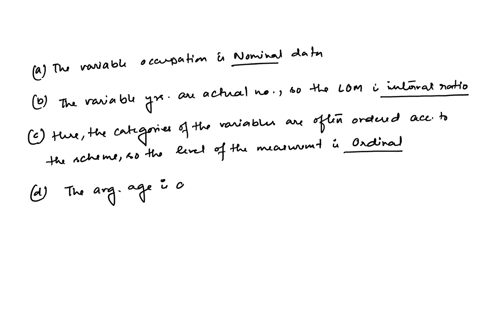 (a) The variable occupation is Nominal data
(b) The variable yrs. are actual no., so the LOM i interval ratio
(c) Here, the categories of the variables are often ordered acc. to
the scheme, so the level of the measurmt is Ordinal
(d) The avg. age i o